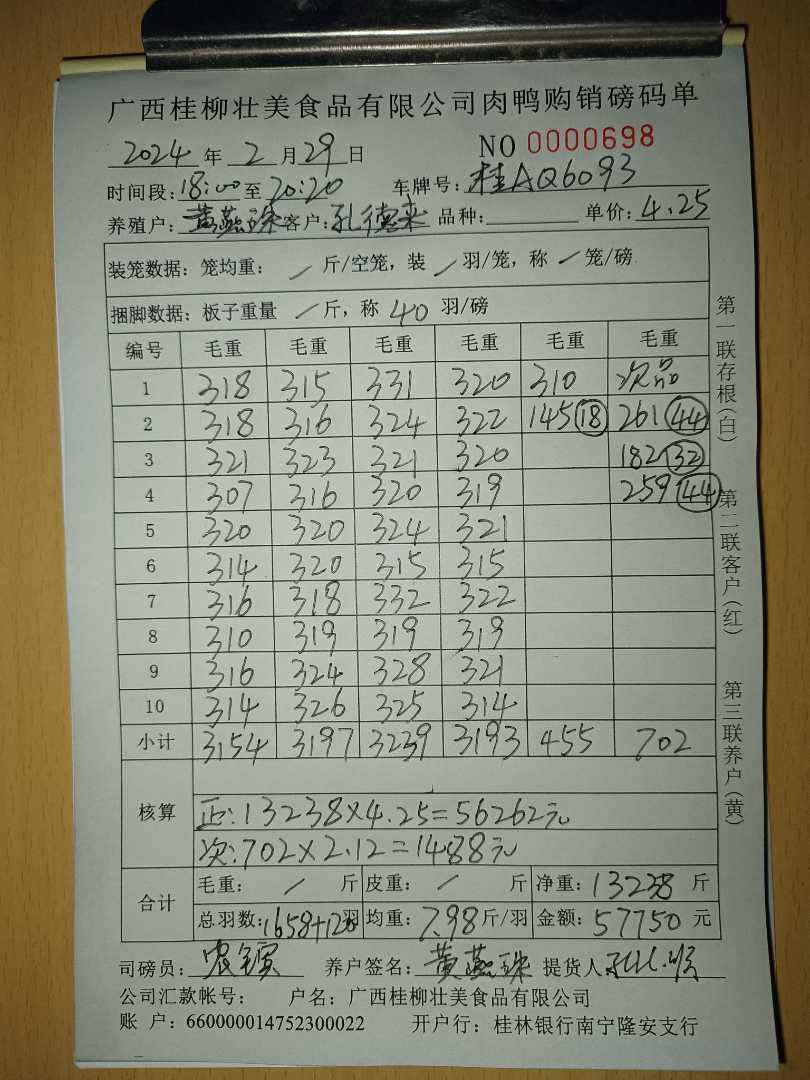 广西桂柳壮美食品有限公司肉鸭购销磅码单
2024 年 2 月 29 日 NO 0000698
时间段: 18:00 至 20:20 车牌号: 桂AQ6093
养殖户: 黄燕珠 客户: 孔德来 品种: 单价: 4.25
装笼数据: 笼均重: / 斤/空笼, 装 / 羽/笼, 称 / 笼/磅
捆脚数据: 板子重量 / 斤, 称 40 羽/磅
编号 毛重 毛重 毛重 毛重 毛重 毛重
1 318 315 331 320 310 次品
2 318 316 324 322 145 18 261 44
3 321 323 321 320 182 32
4 307 316 320 319 259 44
5 320 320 324 321
6 314 320 315 315
7 316 318 332 322
8 310 319 319 319
9 316 324 328 321
10 314 326 325 314
小计 3154 3197 3239 3193 455 702
核算
正: 13238×4.25=56262元
次: 702×2.12=1488元
合计
毛重: / 斤 皮重: / 斤 净重: 13238 斤
总羽数: 1658+120 羽 均重: 7.98 斤/羽 金额: 57750 元
司磅员: 养户签名: 黄燕珠 提货人
公司汇款帐号: 户名: 广西桂柳壮美食品有限公司
账 户: 660000014752300022 开户行: 桂林银行南宁隆安支行
第一联存根(白)
第二联客户(红)
第三联养户(黄)